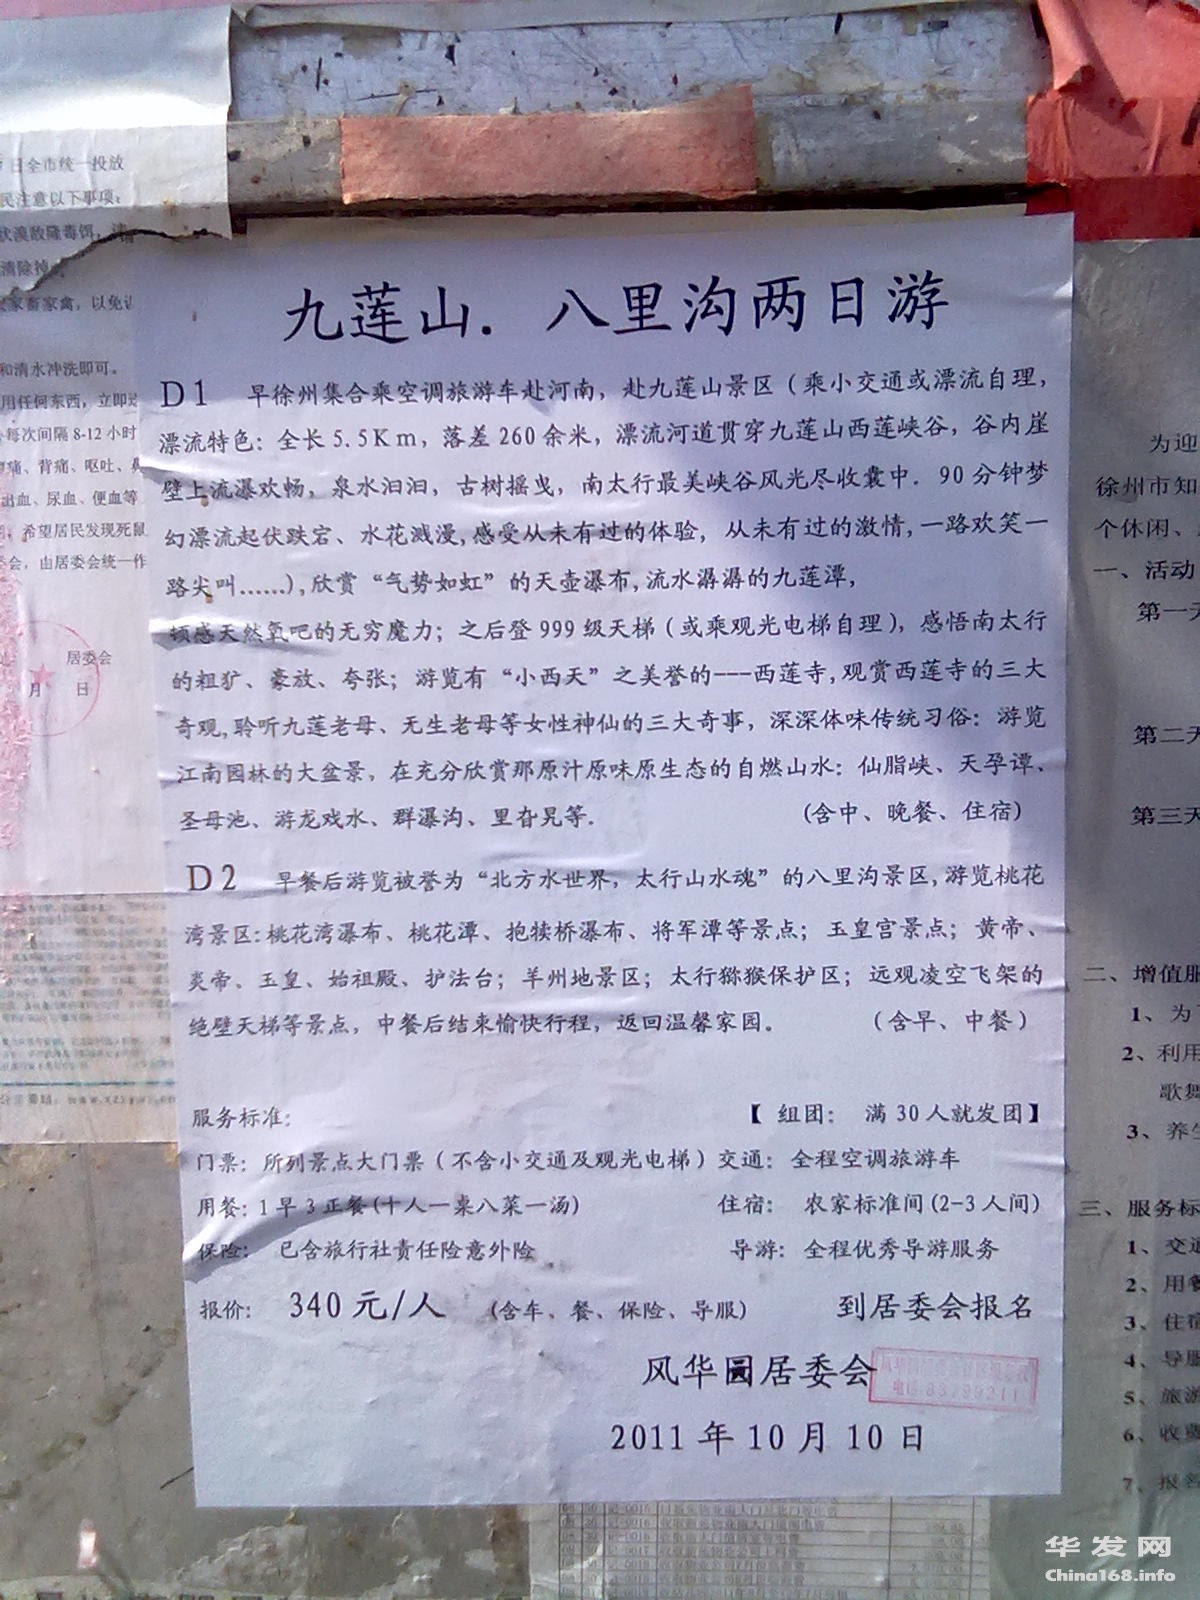 九莲山．八里沟两日游
D1 早徐州集合乘空调旅游车赴河南，赴九莲山景区（乘小交通或漂流自理，
漂流特色：全长5.5Km，落差260余米，漂流河道贯穿九莲山西莲峡谷，谷内崖
壁上流瀑欢畅，泉水汩汩，古树摇曳，南太行最美峡谷风光尽收囊中．90分钟梦
幻漂流起伏跌宕、水花溅漫,感受从未有过的体验，从未有过的激情，一路欢笑一
路尖叫……),欣赏“气势如虹”的天壶瀑布,流水潺潺的九莲潭,
顿感天然氧吧的无穷魔力；之后登999级天梯（或乘观光电梯自理），感悟南太行
的粗犷、豪放、夸张；游览有“小西天”之美誉的---西莲寺,观赏西莲寺的三大
奇观,聆听九莲老母、无生老母等女性神仙的三大奇事，深深体味传统习俗：游览
江南园林的大盆景，在充分欣赏那原汁原味原生态的自燃山水：仙脂峡、天孕谭、
圣母池、游龙戏水、群瀑沟、里旮旯等．
(含中、晚餐、住宿)
D2 早餐后游览被誉为“北方水世界，太行山水魂”的八里沟景区,游览桃花
湾景区:桃花湾瀑布、桃花潭、抱犊桥瀑布、将军潭等景点；玉皇宫景点；黄帝、
炎帝、玉皇、始祖殿、护法台；羊州地景区；太行猕猴保护区；远观凌空飞架的
绝壁天梯等景点，中餐后结束愉快行程，返回温馨家园。
（含早、中餐）
服务标准:
【 组团： 满30人就发团】
门票：所列景点大门票（不含小交通及观光电梯）交通：全程空调旅游车
用餐：1早3正餐(十人一桌八菜一汤)
住宿： 农家标准间(2-3人间)
保险： 已含旅行社责任险意外险
导游：全程优秀导游服务
报价： 340元/人 (含车、餐、保险、导服)
到居委会报名
风华园居委会
2011年10月10日
日全市统一投放
民注意以下事项：
清除掉
家畜家禽，以免
和清水冲洗即可。
用任何东西，立即
每次间隔8-12小时
痛、背痛、呕吐、
出血、尿血、便血等
希望居民发现死鼠
委会，由居委会统一作
居委会
月 日
为迎
徐州市知
个休闲、
一、活动
第一天
第二天
第三天
二、增值服
1、为
2、利用
歌舞
3、养生
三、服务标
1、交通
2、用餐
3、住宿
4、导服
5、旅游
6、收
7、报名
华发网
China168.info